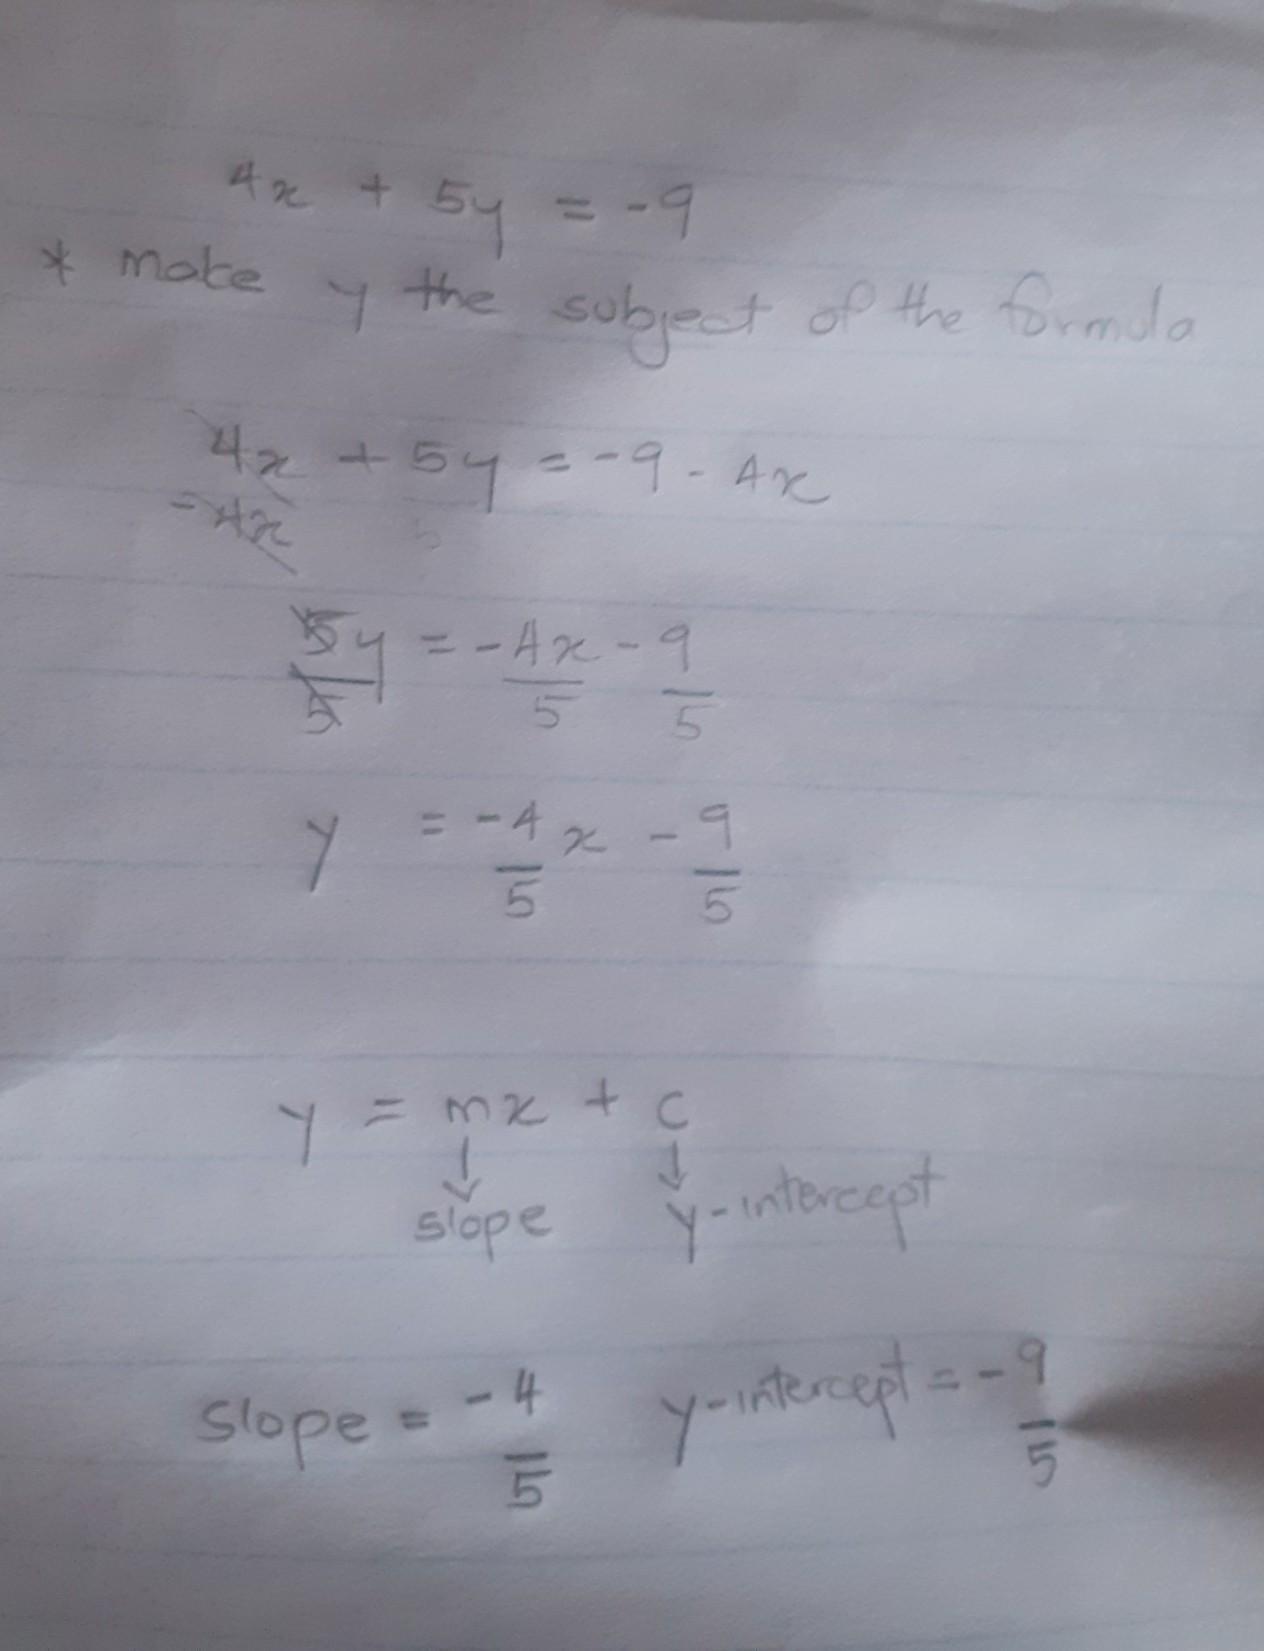 4x + 5y = -9
* make y the subject of the formula
4x + 5y = -9 - 4x
-4x
5y = -4x - 9
5 5 5
y = -4 x - 9
5 5
y = mx + c
↓ ↓
slope y-intercept
slope = -4 y-intercept = -9
5 5